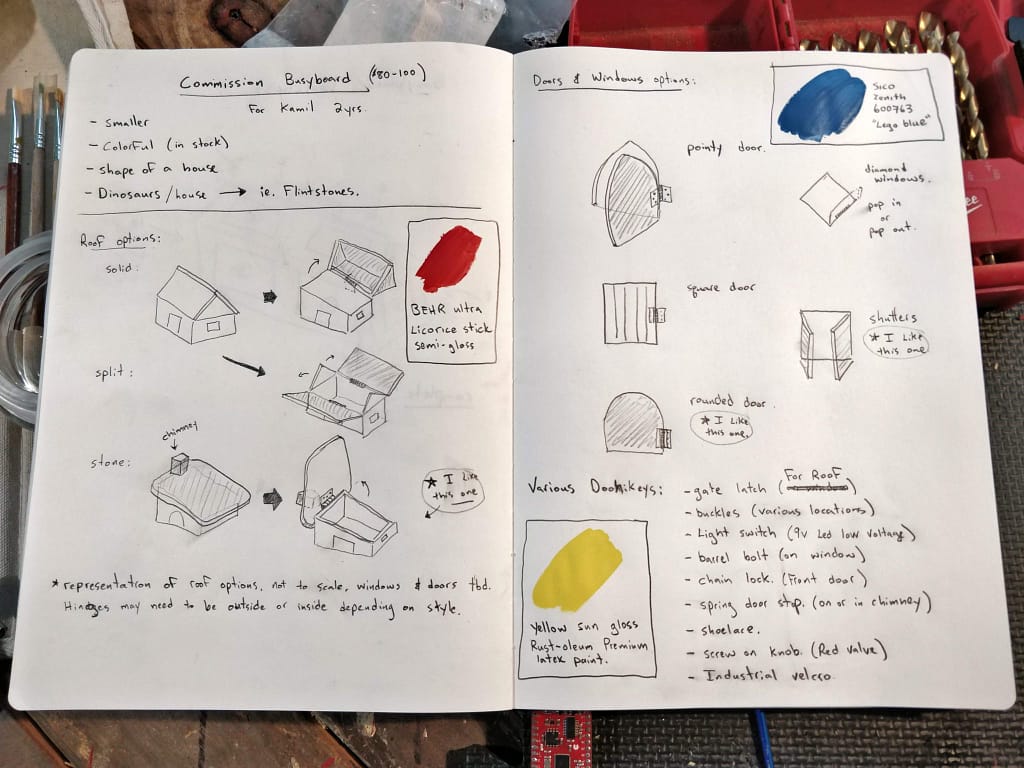 Commission Busyboard ($80-100)
For Kamil 2yrs.
- smaller
- Colorful (in stock)
- shape of a house
- Dinosaurs/house → ie. Flintstones.
Roof options:
solid:
split:
chimney
stone:
* I Like
this one
BEHR ultra
Licorice stick
semi-gloss
* representation of roof options, not to scale, windows & doors tbd.
Hinges may need to be outside or inside depending on style.
Doors & Windows options:
SICO
Zenith
600763
"Lego blue"
pointy door.
diamond
windows.
pop in
or
pop out.
square door
shutters
* I Like
this one
rounded door.
* I Like
this one.
Various Doohikeys:
- gate latch (For Roof)
- buckles (various locations)
- Light switch (9v Led low voltage)
- barrel bolt (on window)
- chain lock. (Front door)
- spring door stop. (on or in chimney)
- shoelace.
- screw on knob. (Red valve)
- Industrial velcro.
Yellow Sun gloss
Rust-oleum Premium
latex paint.